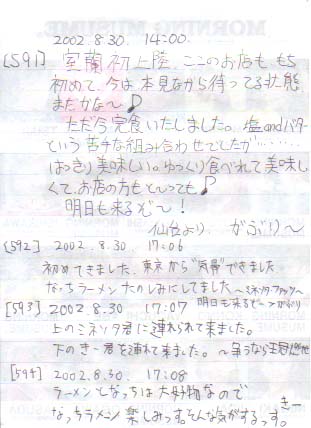 MORNING MUSUME.
2002.8.30. 14:00.
[591] 室蘭初上陸、ここのお店も もち
初めて、今は本見ながら待ってる状態
まだかな～♪
ただ今完食いたしました。塩andバター
という苦手な組み合わせでしたが……
はっきり美味しい。ゆっくり食べれて美味し
くて、お店の方もとっても♪
明日も来るぞ～!
仙台より がぶり～
[592] 2002.8.30 17:06
初めてきました、東京から"気骨"できました
なっちラーメン 大のしみにしてました ～ミネソタ・ファッツ～
[593] 2002.8.30 17:07 明日も来るぞ～>がぶり
上のミネソタ君に連れられて来ました。
下のきー君を連れて来ました。～争うなら
[594] 2002.8.30. 17:08
ラーメンとなっちは大好物なので
なっちラーメン 楽しみっす。そんな気がするっす。きー